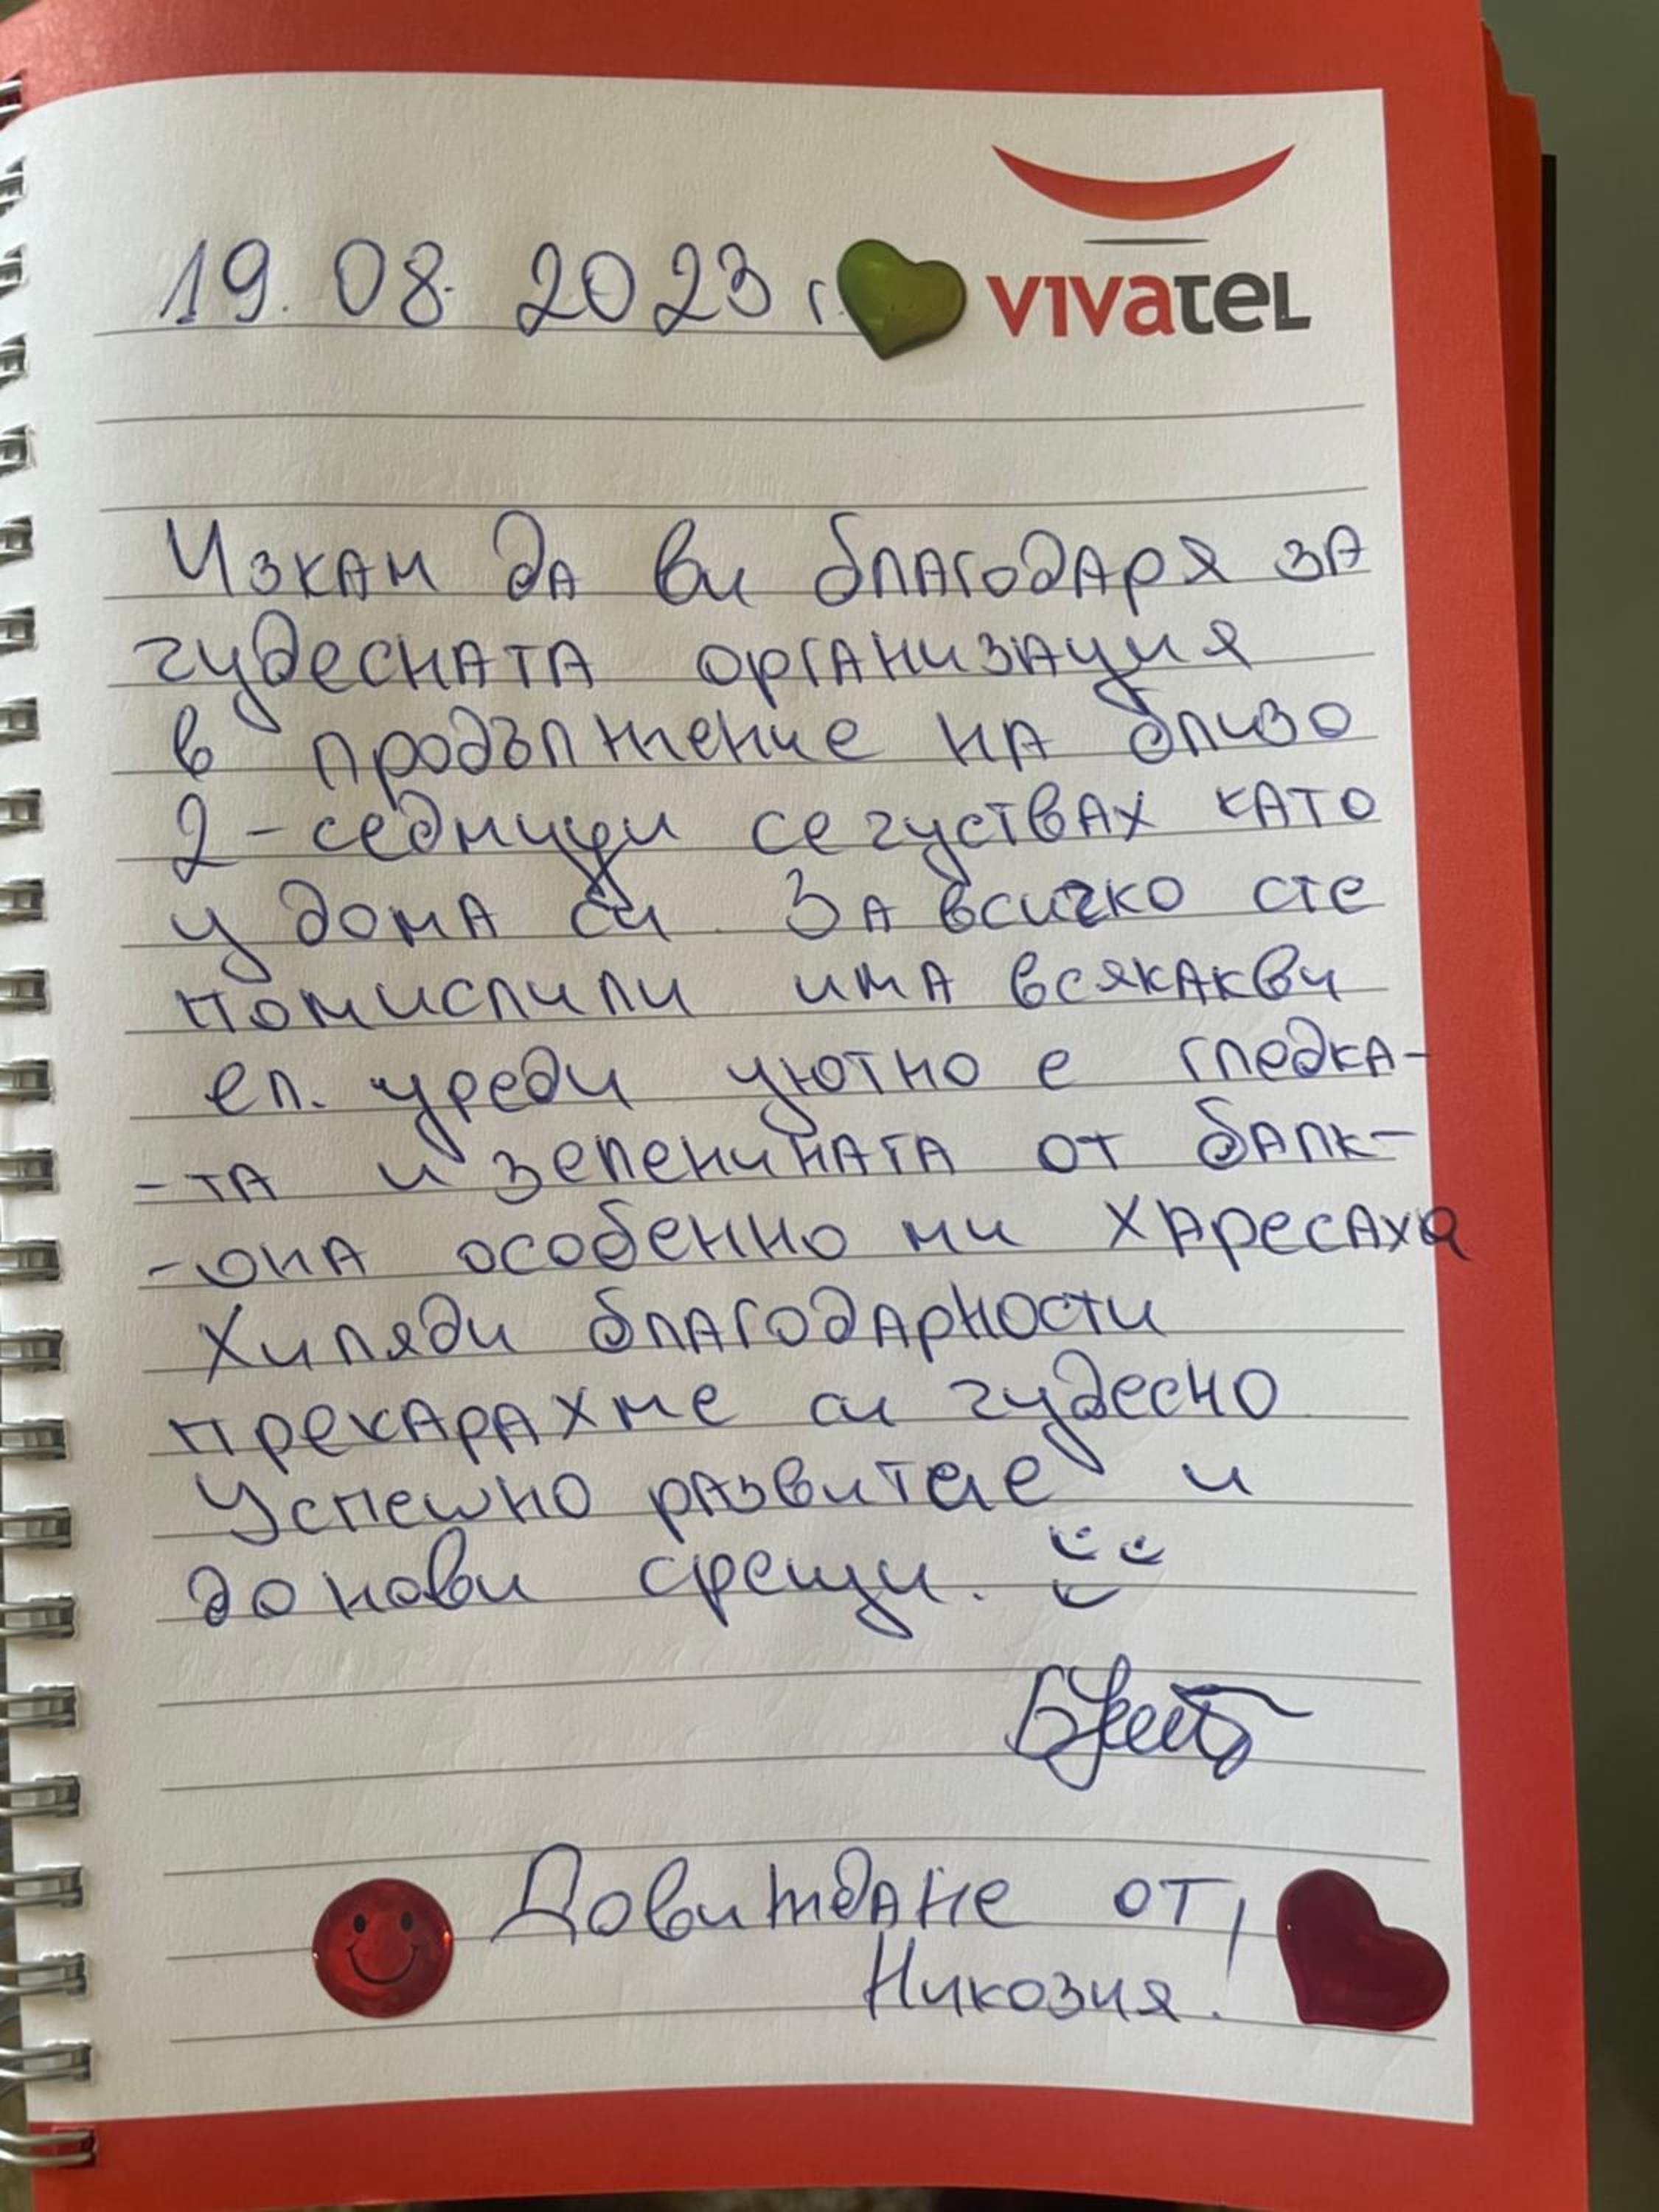 19. 08. 2023 г.
vivatel
Изкам да ви благодаря за
чудесната организация
в продължение на близо
2-седмици се чуствах като
у дома си. За всичко сте
помислили има всякакви
ел. уреди уютно е гледка-
-та и зеленината от балк-
-она особенно ми харесаха
Хиляди благодарности
прекарахме си чудесно
Успешно развитие и
до нови срещи.
Довиждане от
Никозия!